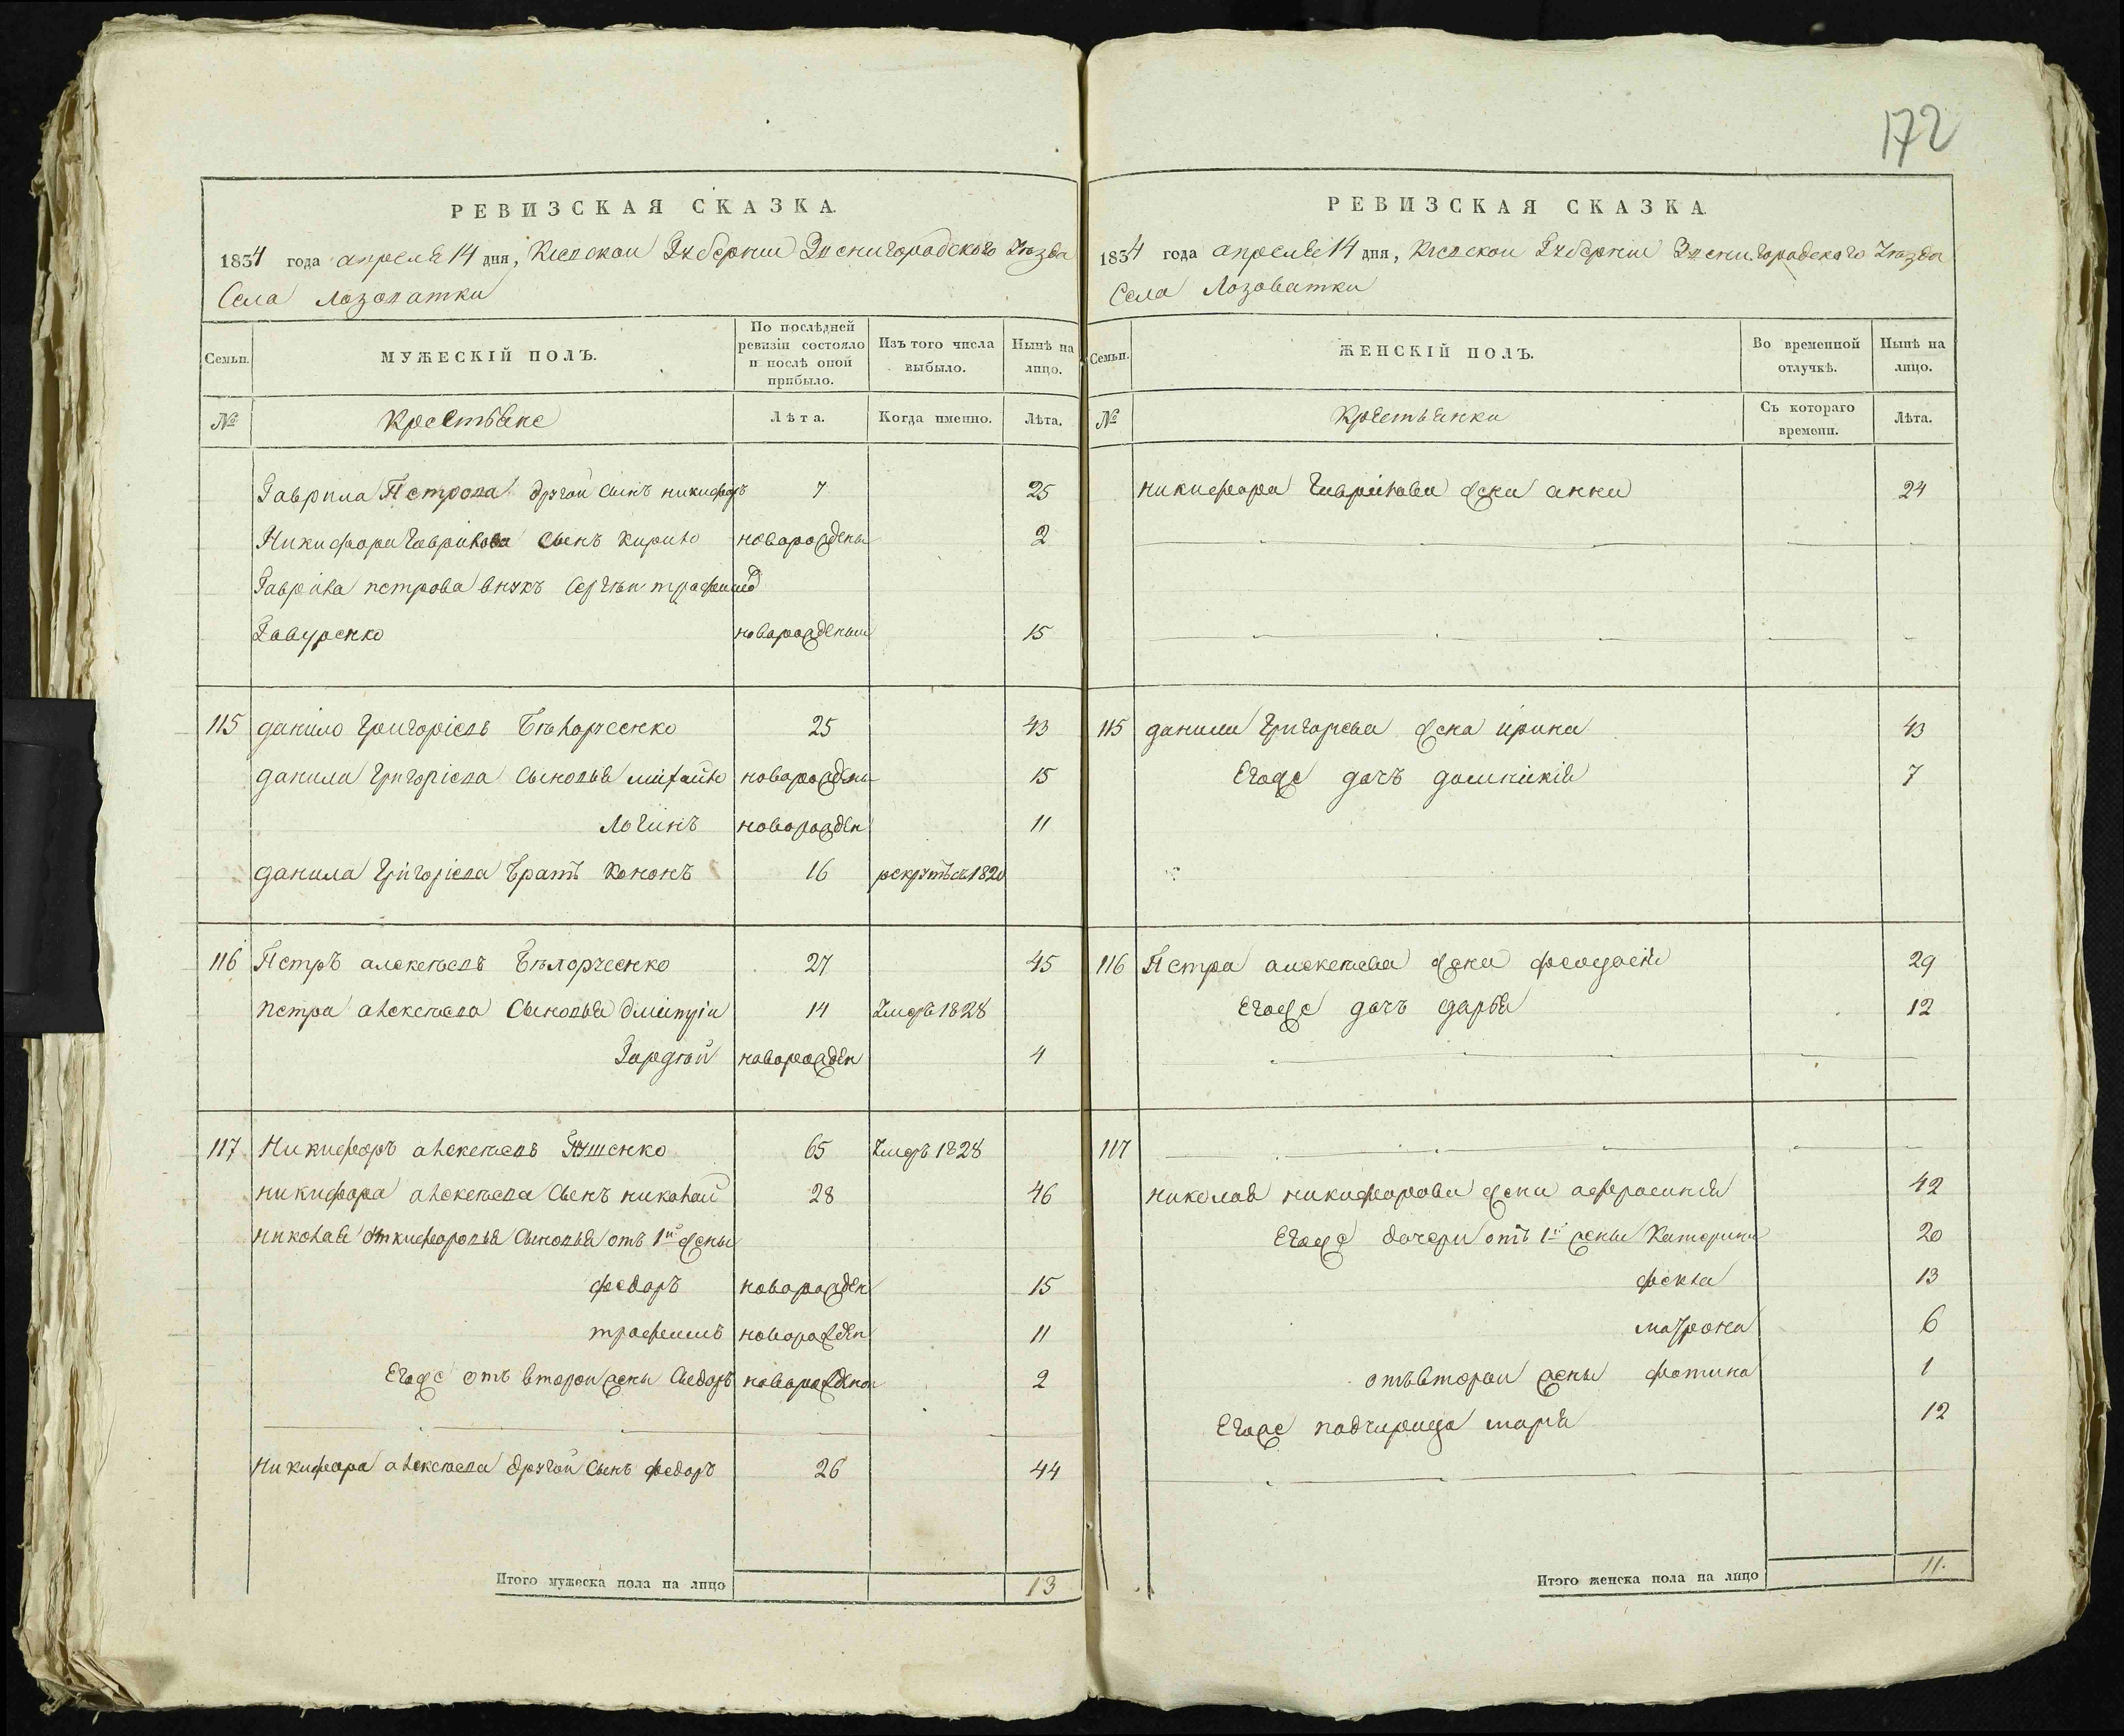 172
РЕВИЗСКАЯ СКАЗКА.
1834 года апреля 14 дня, Киевской Губернии Звенигородского Уезда
Села Лозоватки
Семьи. МУЖЕСКІЙ ПОЛЪ. По послѣдней ревизіи состояло и послѣ оной прибыло. Изъ того числа выбыло. Нынѣ на лицо.
№ Крестьяне Лѣта. Когда именно. Лѣта.
Гаврила Петрова другой сынъ никифоръ 7 25
Никифора Гаврилова сынъ кирило новорожденный 2
Гаврила петрова внукъ Сергѣи
новорожденный 15
115 данило Григоріевъ 25 43
данила Григоріева сыновья михайло новорожденный 15
Логинъ новорожден 11
данила Григоріева братъ Кононъ 16 рекрутъ въ 1820
116 Петръ алексѣевъ 27 45
петра алексѣева сыновья дмитріи 14 Умръ 1828
Гордѣй новорожден 4
117 Никифоръ алексѣевъ 65 Умръ 1828
никифора алексѣева сынъ николай 28 46
николая никифоровыя сыновья отъ 1й жены
федоръ новорожден 15
трофимъ новорожден 11
Егоже отъ второй жены сидоръ новорожденой 2
никифора алексѣева другой сынъ федоръ 26 44
Итого мужеска пола на лицо 13
РЕВИЗСКАЯ СКАЗКА.
1834 года апреля 14 дня, Киевской Губернии Звенигородского Уезда
Села Лозоватки
Семьи. ЖЕНСКІЙ ПОЛЪ. Во временной отлучкѣ. Нынѣ на лицо.
№ Крестьянки Съ котораго времени. Лѣта.
никифора Гаврилова жена анна 24
115 данила Григорьева жена ирина 43
Егоже дочъ 7
116 Петра алексѣева жена феодосия 29
Егоже дочъ дарья 12
117
николая никифорова жена афросиния 42
Егоже дочери отъ 1й жены Катерина 20
фекла 13
матрона 6
отъ второй жены фотина 1
Егоже падчирица марія 12
Итого женска пола на лицо 11.